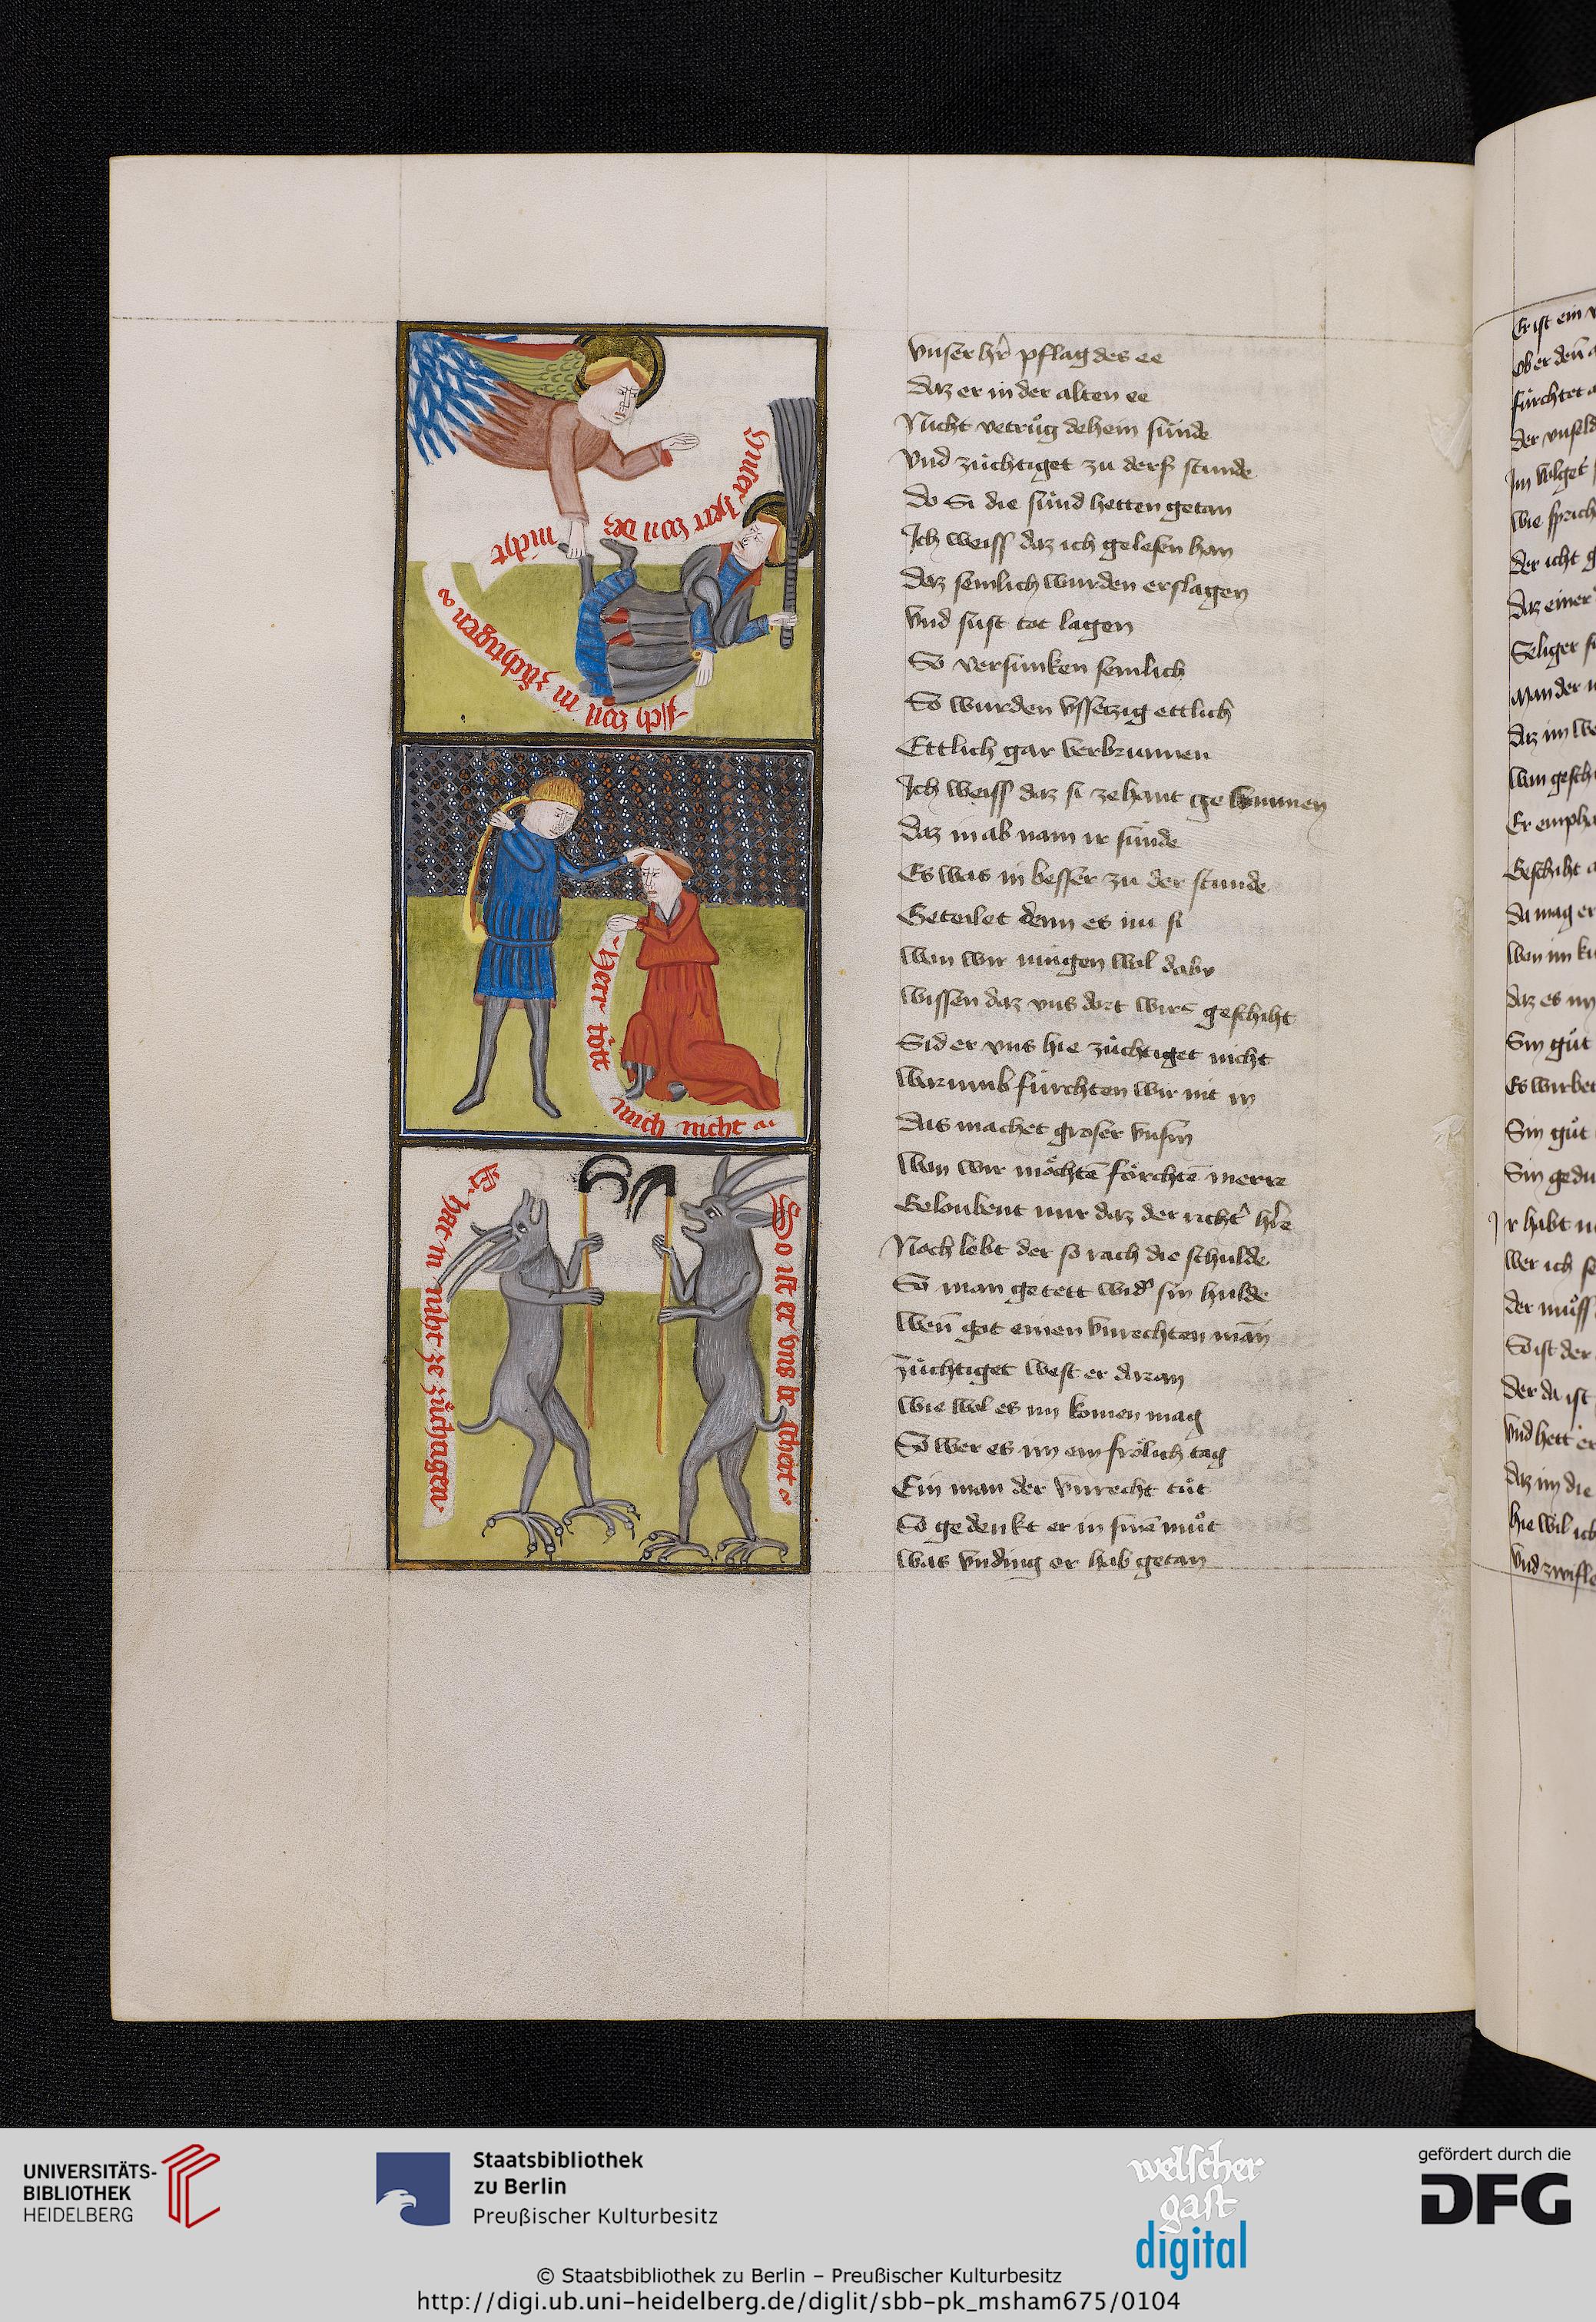 Vnser herr wil des
nicht
Ich wil in züchtigen
Herr tött
mich nicht
Er hat in niht ze züchagen
So ist er vns beschert
vnser hr̄ pflag des ee
daz er in der alten ee
Nicht vetrůg dehein sünde
vnd züchtiget zu ders stunde
do Si die sünd hetten getan
Ich weiss daz ich gelesen han
daz semlich wurden erslagen
vnd sust tot lagen
So versunken semlich
So wurden vssetzig ettlich
Ettlich gar verbrunnen
Ich weiss daz si zehant ge wunnen
daz in ab nam ir sünde
Es was in besser zu der stunde
Geteilet denn es im si
wan wir mügen wol daby
wissen daz vns dort wirs geschiht
Sid er vns hie züchtiget nicht
warumb fürchten wir nit in
das machet groser vnsin
wan wir möchtē förchtē merre
Geloubent mir daz der richt' hr̄e
Noch lebt der so rach die schulde
So man getett wid' sin hulde
wen̄ got einen vnrechten man
züchtiget west er daran
wie wol es im komen mag
So wer es im ein frölich tag
Ein man der vnrecht tůt
So gedenkt er in sinē můt
was vnding er hab getan
Er ist ein
ober den̄
fürchtet
der vnseld
Im volget
wie sprich
der icht
daz einer
Seliger
man der
daz im
wan gesch
Er empha
Geschiht
da mag er
wan im
daz es
Sin gůt
Es wirbet
Sin gůt
Sin gedu
Ir habt
wer ich
der můss
So ist der
der da ist
vnd hett er
daz im die
hie wil ich
vnd zwifle
UNIVERSITÄTS-
BIBLIOTHEK
HEIDELBERG
Staatsbibliothek
zu Berlin
Preußischer Kulturbesitz
welscher
gast
digital
gefördert durch die
DFG
© Staatsbibliothek zu Berlin – Preußischer Kulturbesitz
http://digi.ub.uni-heidelberg.de/diglit/sbb-pk_msham675/0104